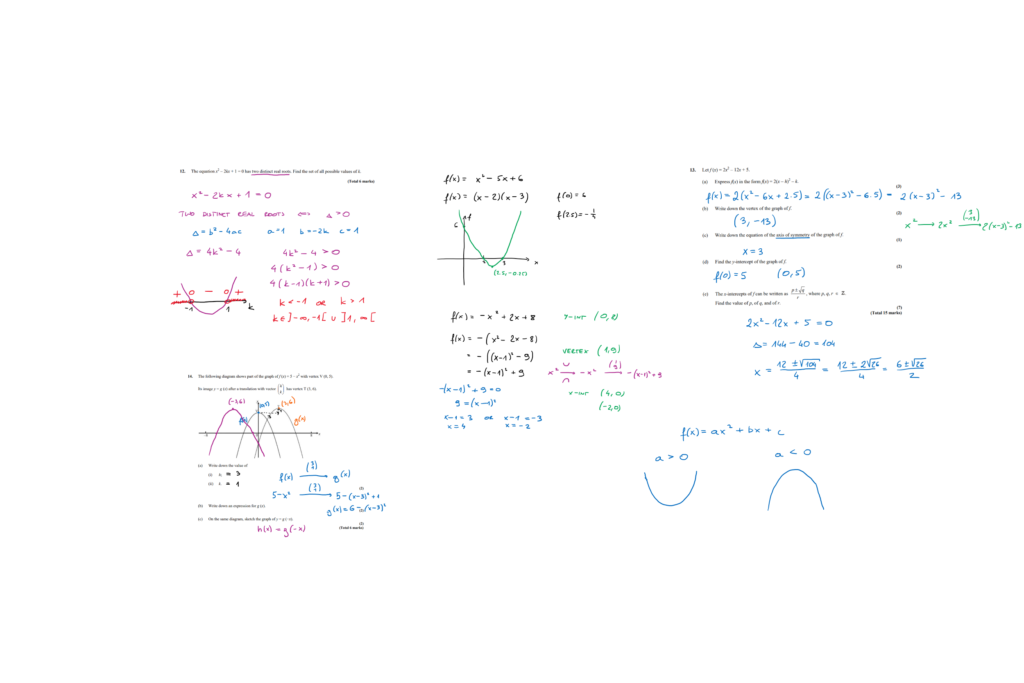 12. The equation x² – 2kx + 1 = 0 has two distinct real roots. Find the set of all possible values of k.
(Total 6 marks)
x² - 2kx + 1 = 0
TWO DISTINCT REAL ROOTS Δ > 0
Δ = b² - 4ac a = 1 b = -2k c = 1
Δ = 4k² - 4 4k² - 4 > 0
4(k² - 1) > 0
4(k-1)(k+1) > 0
+ 0 - 0 +
-1 1 k
k < -1 OR k > 1
k ∈ ]-∞, -1[ ∪ ]1, ∞[
14. The following diagram shows part of the graph of f(x) = 5 – x² with vertex V (0, 5).
Its image y = g(x) after a translation with vector (h k) has vertex T (3, 6).
(-3,6) (0,5) (3,6)
f(x) g(x)
(a) Write down the value of
(i) h; = 3
(ii) k. = 1
f(x) → (3 1) g(x)
(2)
5-x² → (3 1) 5-(x-3)²+1
(b) Write down an expression for g(x).
g(x) = 6-(x-3)²
(c) On the same diagram, sketch the graph of y = g(–x).
(2)
(Total 6 marks)
h(x) = g(-x)
f(x) = x² - 5x + 6
f(x) = (x-2)(x-3) f(0) = 6
f(2.5) = -1/4
f
6
2 3 x
(2.5, -0.25)
f(x) = -x² + 2x + 8 Y-INT (0,8)
f(x) = -(x² - 2x - 8)
= -((x-1)² - 9) VERTEX (1,9)
= -(x-1)² + 9 x² → -x² → (1 9) -(x-1)²+9
-(x-1)² + 9 = 0 X-INT (4,0)
9 = (x-1)² (-2,0)
x-1 = 3 OR x-1 = -3
x = 4 x = -2
13. Let f(x) = 2x² – 12x + 5.
(a) Express f(x) in the form f(x) = 2(x – h)² – k.
(3)
f(x) = 2(x² - 6x + 2.5) = 2((x-3)² - 6.5) = 2(x-3)² - 13
(b) Write down the vertex of the graph of f.
(2)
(3, -13)
x² → 2x² → (3 -13) 2(x-3)²-13
(c) Write down the equation of the axis of symmetry of the graph of f.
(1)
x = 3
(d) Find the y-intercept of the graph of f.
(2)
f(0) = 5 (0,5)
(e) The x-intercepts of f can be written as (p ± √q)/r, where p, q, r ∈ ℤ.
Find the value of p, of q, and of r.
(7)
(Total 15 marks)
2x² - 12x + 5 = 0
Δ = 144 - 40 = 104
x = (12 ± √104)/4 = (12 ± 2√26)/4 = (6 ± √26)/2
f(x) = ax² + bx + c
a > 0 a < 0